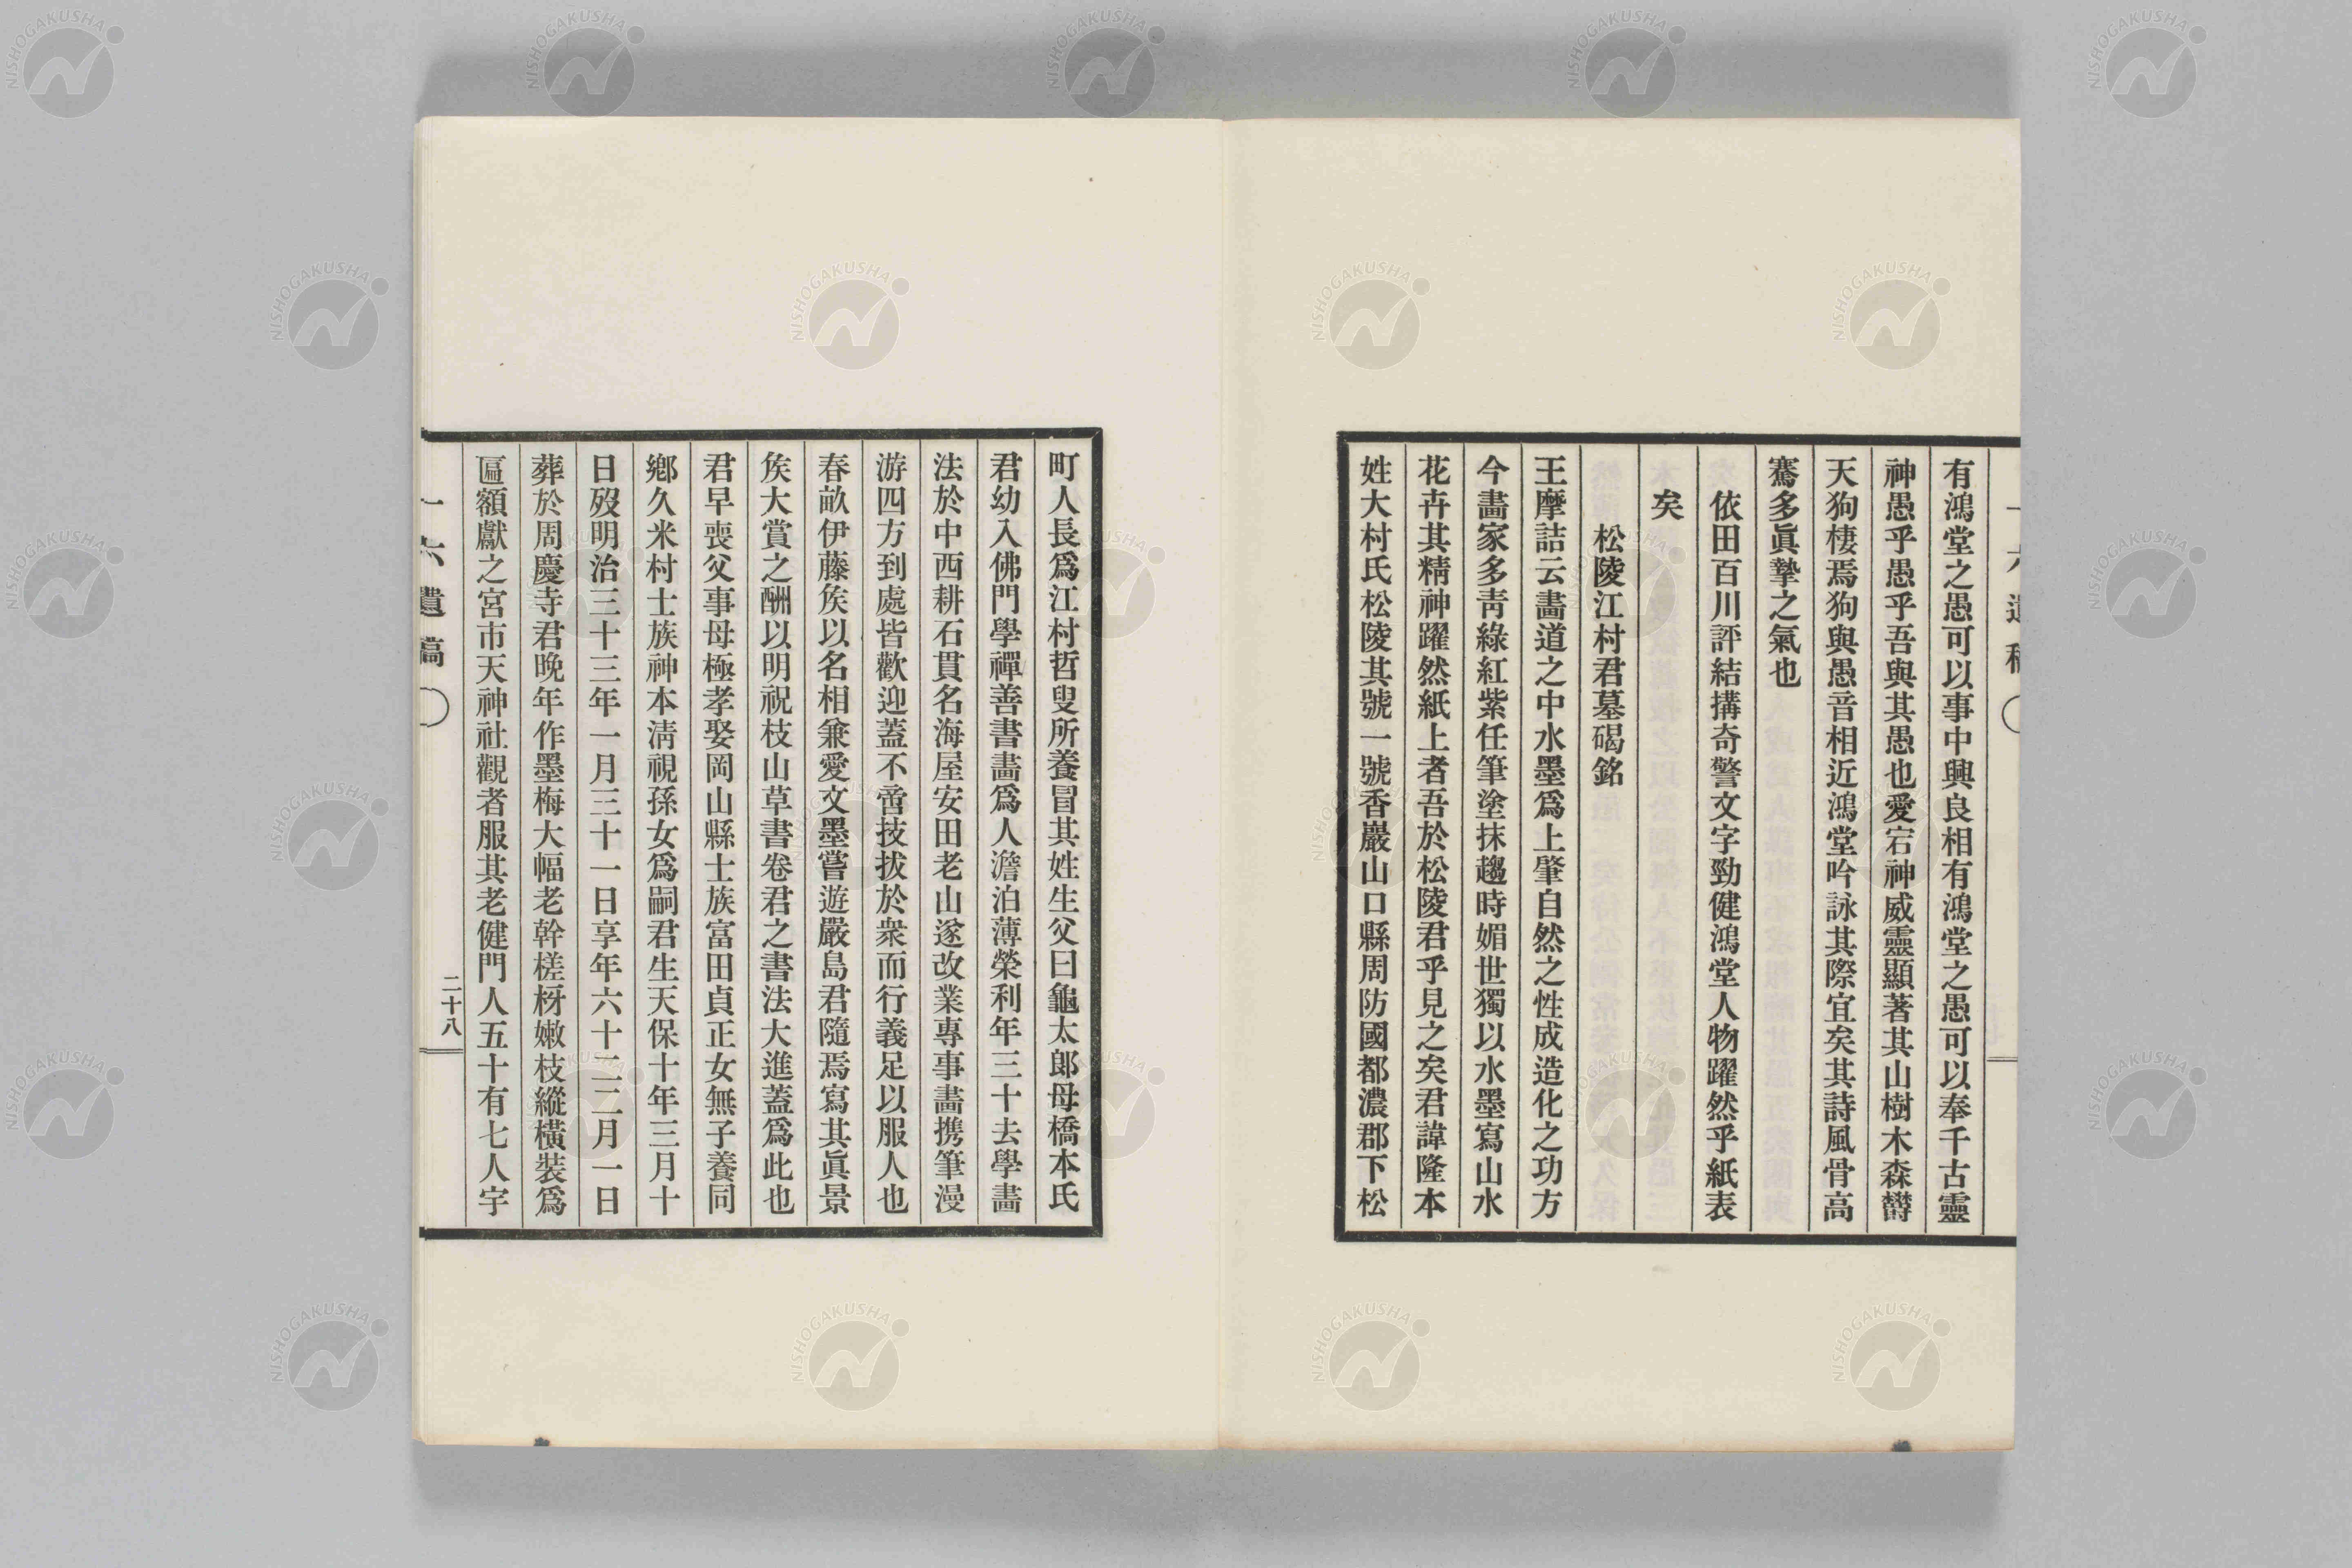 有鴻堂之愚可以事中興良相有鴻堂之愚可以奉千古靈
神愚乎愚乎吾與其愚也愛宕神威靈顯著其山樹木森欝
天狗棲焉狗與愚音相近鴻堂吟詠其際宜矣其詩風骨高
騫多眞摯之氣也
依田百川評結搆奇警文字勁健鴻堂人物躍然乎紙表
矣
松陵江村君墓碣銘
王摩詰云畵道之中水墨爲上肇自然之性成造化之功方
今畵家多靑綠紅紫任筆塗抹趨時媚世獨以水墨寫山水
花卉其精神躍然紙上者吾於松陵君乎見之矣君諱隆本
姓大村氏松陵其號一號香巖山口縣周防國都濃郡下松
町人長爲江村哲叟所養冒其姓生父曰龜太郎母橋本氏
君幼入佛門學禪善書畵爲人澹泊薄榮利年三十去學畵
法於中西耕石貫名海屋安田老山遂改業專事畵携筆漫
游四方到處皆歡迎蓋不啻技拔於衆而行義足以服人也
春畝伊藤矦以名相兼愛文墨嘗遊嚴島君隨焉寫其眞景
矦大賞之酬以明祝枝山草書卷君之書法大進蓋爲此也
君早喪父事母極孝娶岡山縣士族富田貞正女無子養同
鄕久米村士族神本淸視孫女爲嗣君生天保十年三月十
日歿明治三十三年一月三十一日享年六十二二月一日
葬於周慶寺君晩年作墨梅大幅老幹槎枒嫩枝縱橫裝爲
匾額獻之宮市天神社觀者服其老健門人五十有七人宇
一六遺稿
二十八
NISHOGAKUSHA